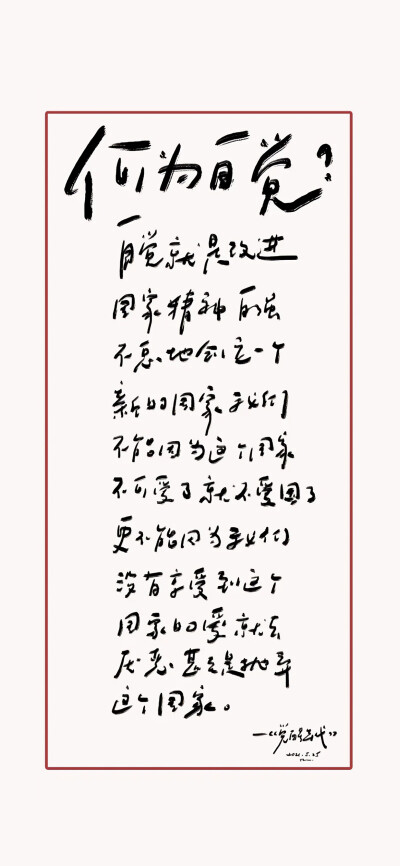 何为自觉?
自觉就是改进
国家精神
不息地创立一个
新的国家我们
不能因为这个国家
不可爱了就不爱国了
更不能因为我们
没有享受到这个
国家的爱就去
厌恶甚至是抛弃
这个国家。
—“觉醒年代”
2021.5.25